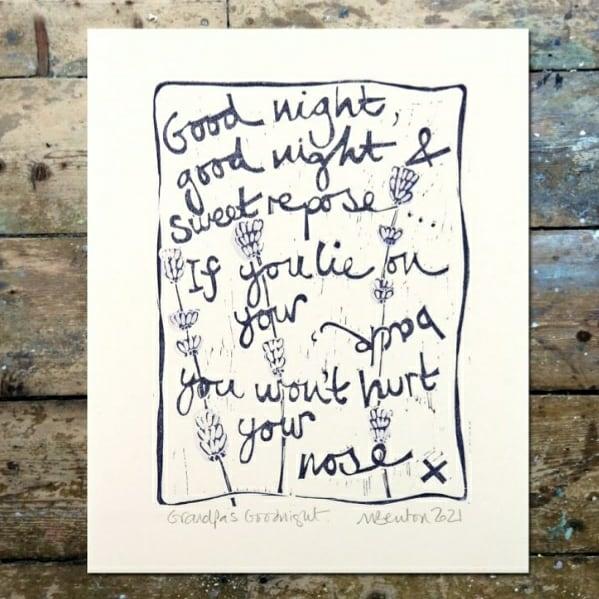 Good night,
good night &
sweet repose ...
If you lie on
your
back,
you won't hurt
your
nose x
Grandpa's Goodnight. MBenton 2021